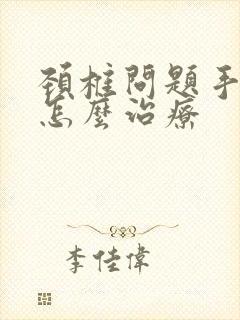 頚椎問題手
怎麼治療
李佳偉